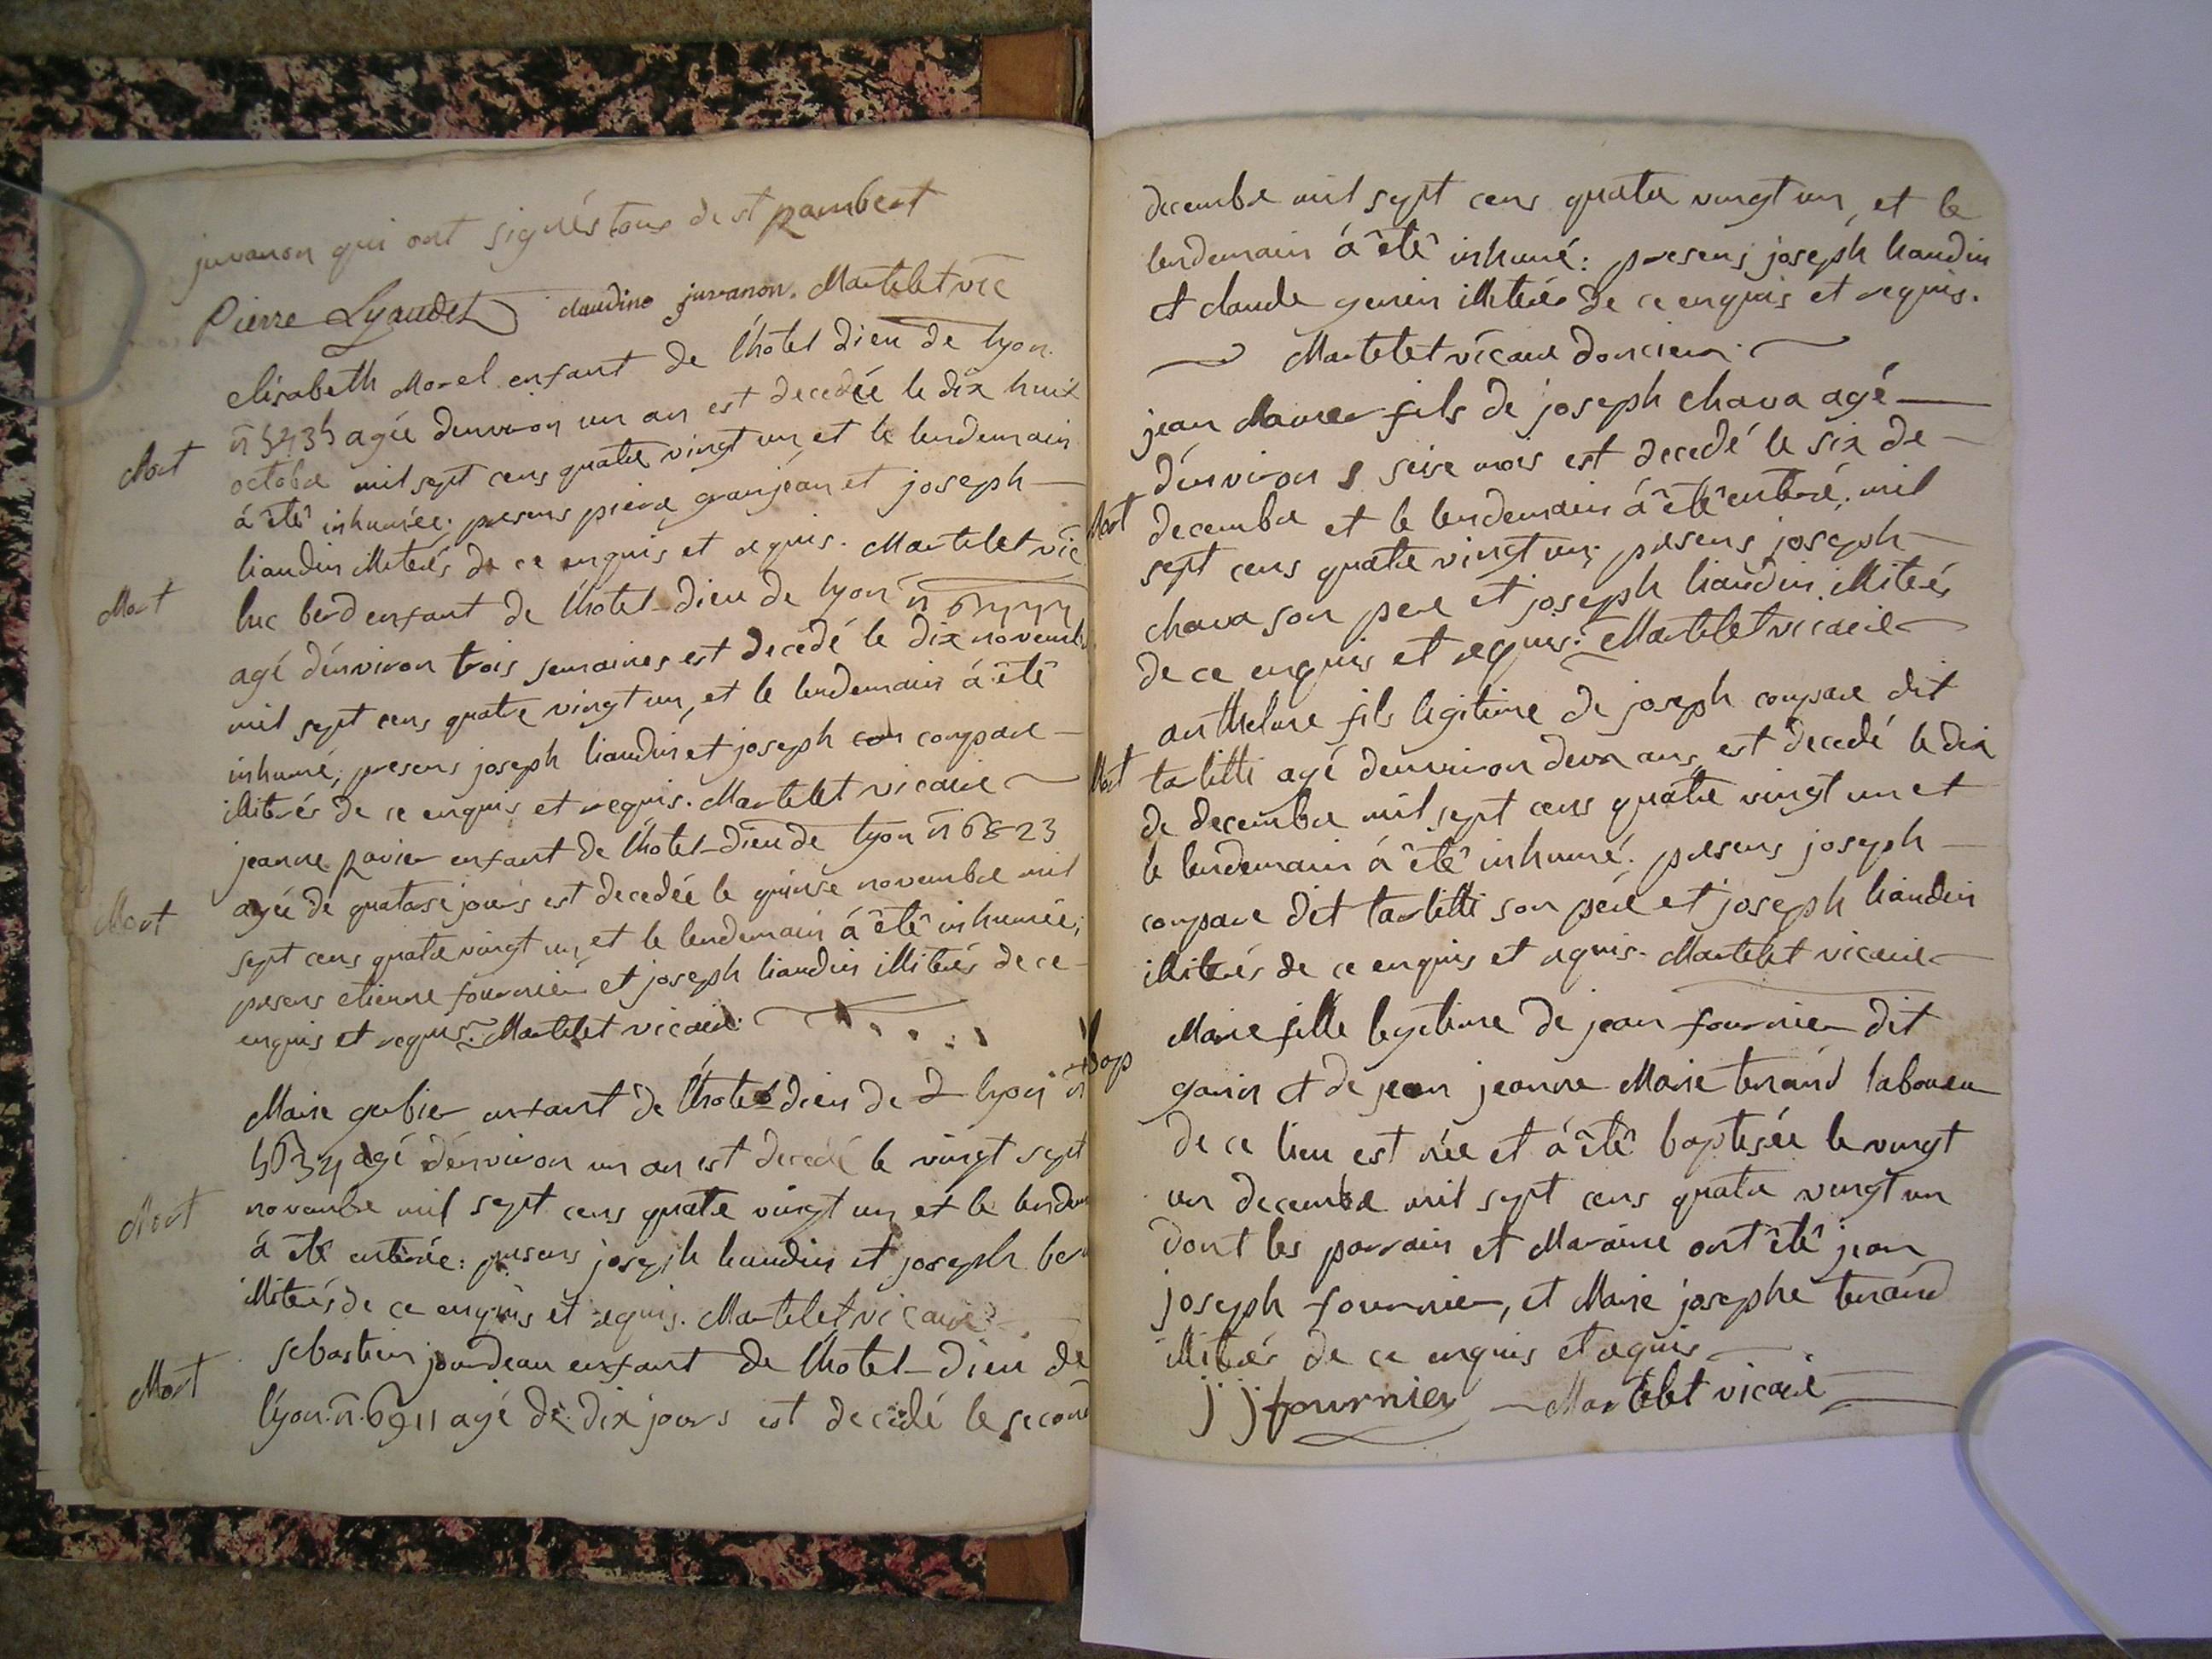 juvanon qui ont signés tous de st rambert
Pierre Lyaudet claudine juvanon. Martelet vic
elisabeth Morel enfant de l'hotel dieu de lyon.
agée d'environ un an est decedée le dix huit
Mort
octobre mil sept cens quatre vingt un, et le lendemain
à êtê inhumée; presens pierre granjean et joseph
liaudin illiterés de ce enquis et requis. Martelet vic
Mort
luc berd enfant de l'hotel-dieu de lyon n
agé d'environ trois semaines est decedé le dix novemb
mil sept cens quatre vingt un, et le lendemain à êtê
inhumé; presens joseph liaudin et joseph compare
illiterés de ce enquis et requis. Martelet vicaire
jeanne ravier enfant de l'hotel-dieu de lyon n 6823
agée de quatorse jours est decedée le quinse novembre mil
Mort
sept cens quatre vingt un, et le lendemain à êtê inhumée;
presens etienne fournier et joseph liaudin illiterés de ce
enquis et requis. Martelet vicaire.
Marie gerbier enfant de l'hotel dieu de lyon n
agé d'environ un an est decedé le vingt sept
Mort
novembre mil sept cens quatre vingt un et le lendem
à êtê enterrée: presens joseph liaudin et joseph ber
illiterés de ce enquis et requis. Martelet vicaire
Mort
sebastien jourdeau enfant de l'hotel-dieu de
lyon. n. 6911 agé de dix jours est decedé le second
decembre mil sept cens quatre vingt un, et le
lendemain à êtê inhumé: presens joseph liaudin
et claude genin illiterés de ce enquis et requis.
Martelet vicaire doncieux.
jean Marie fils de joseph chava agé
d'environ seise mois est decedé le six de
Mort
decembre et le lendemain à êtê enterré; mil
sept cens quatre vingt un; presens joseph
chava son pere et joseph liaudin illiterés
de ce enquis et requis. Martelet vicaire
anthelme fils legitime de joseph compare dit
Mort
tarlitti agé d'environ deux ans, est decedé le dix
de decembre mil sept cens quatre vingt un et
le lendemain à êtê inhumé; presens joseph
compare dit tarlitti son père et joseph liaudin
illiterés de ce enquis et requis. Martelet vicaire
Marie fille legitime de jean fournier dit
bap
garin et de jean jeanne Marie tenand laboureu
de ce lieu est née et à êtê baptisée le vingt
un decembre mil sept cens quatre vingt un
dont les parrain et Maraine ont êtê jean
joseph fournier, et Marie josephe tenand
illiterés de ce enquis et requis
j j fournier Martelet vicaire